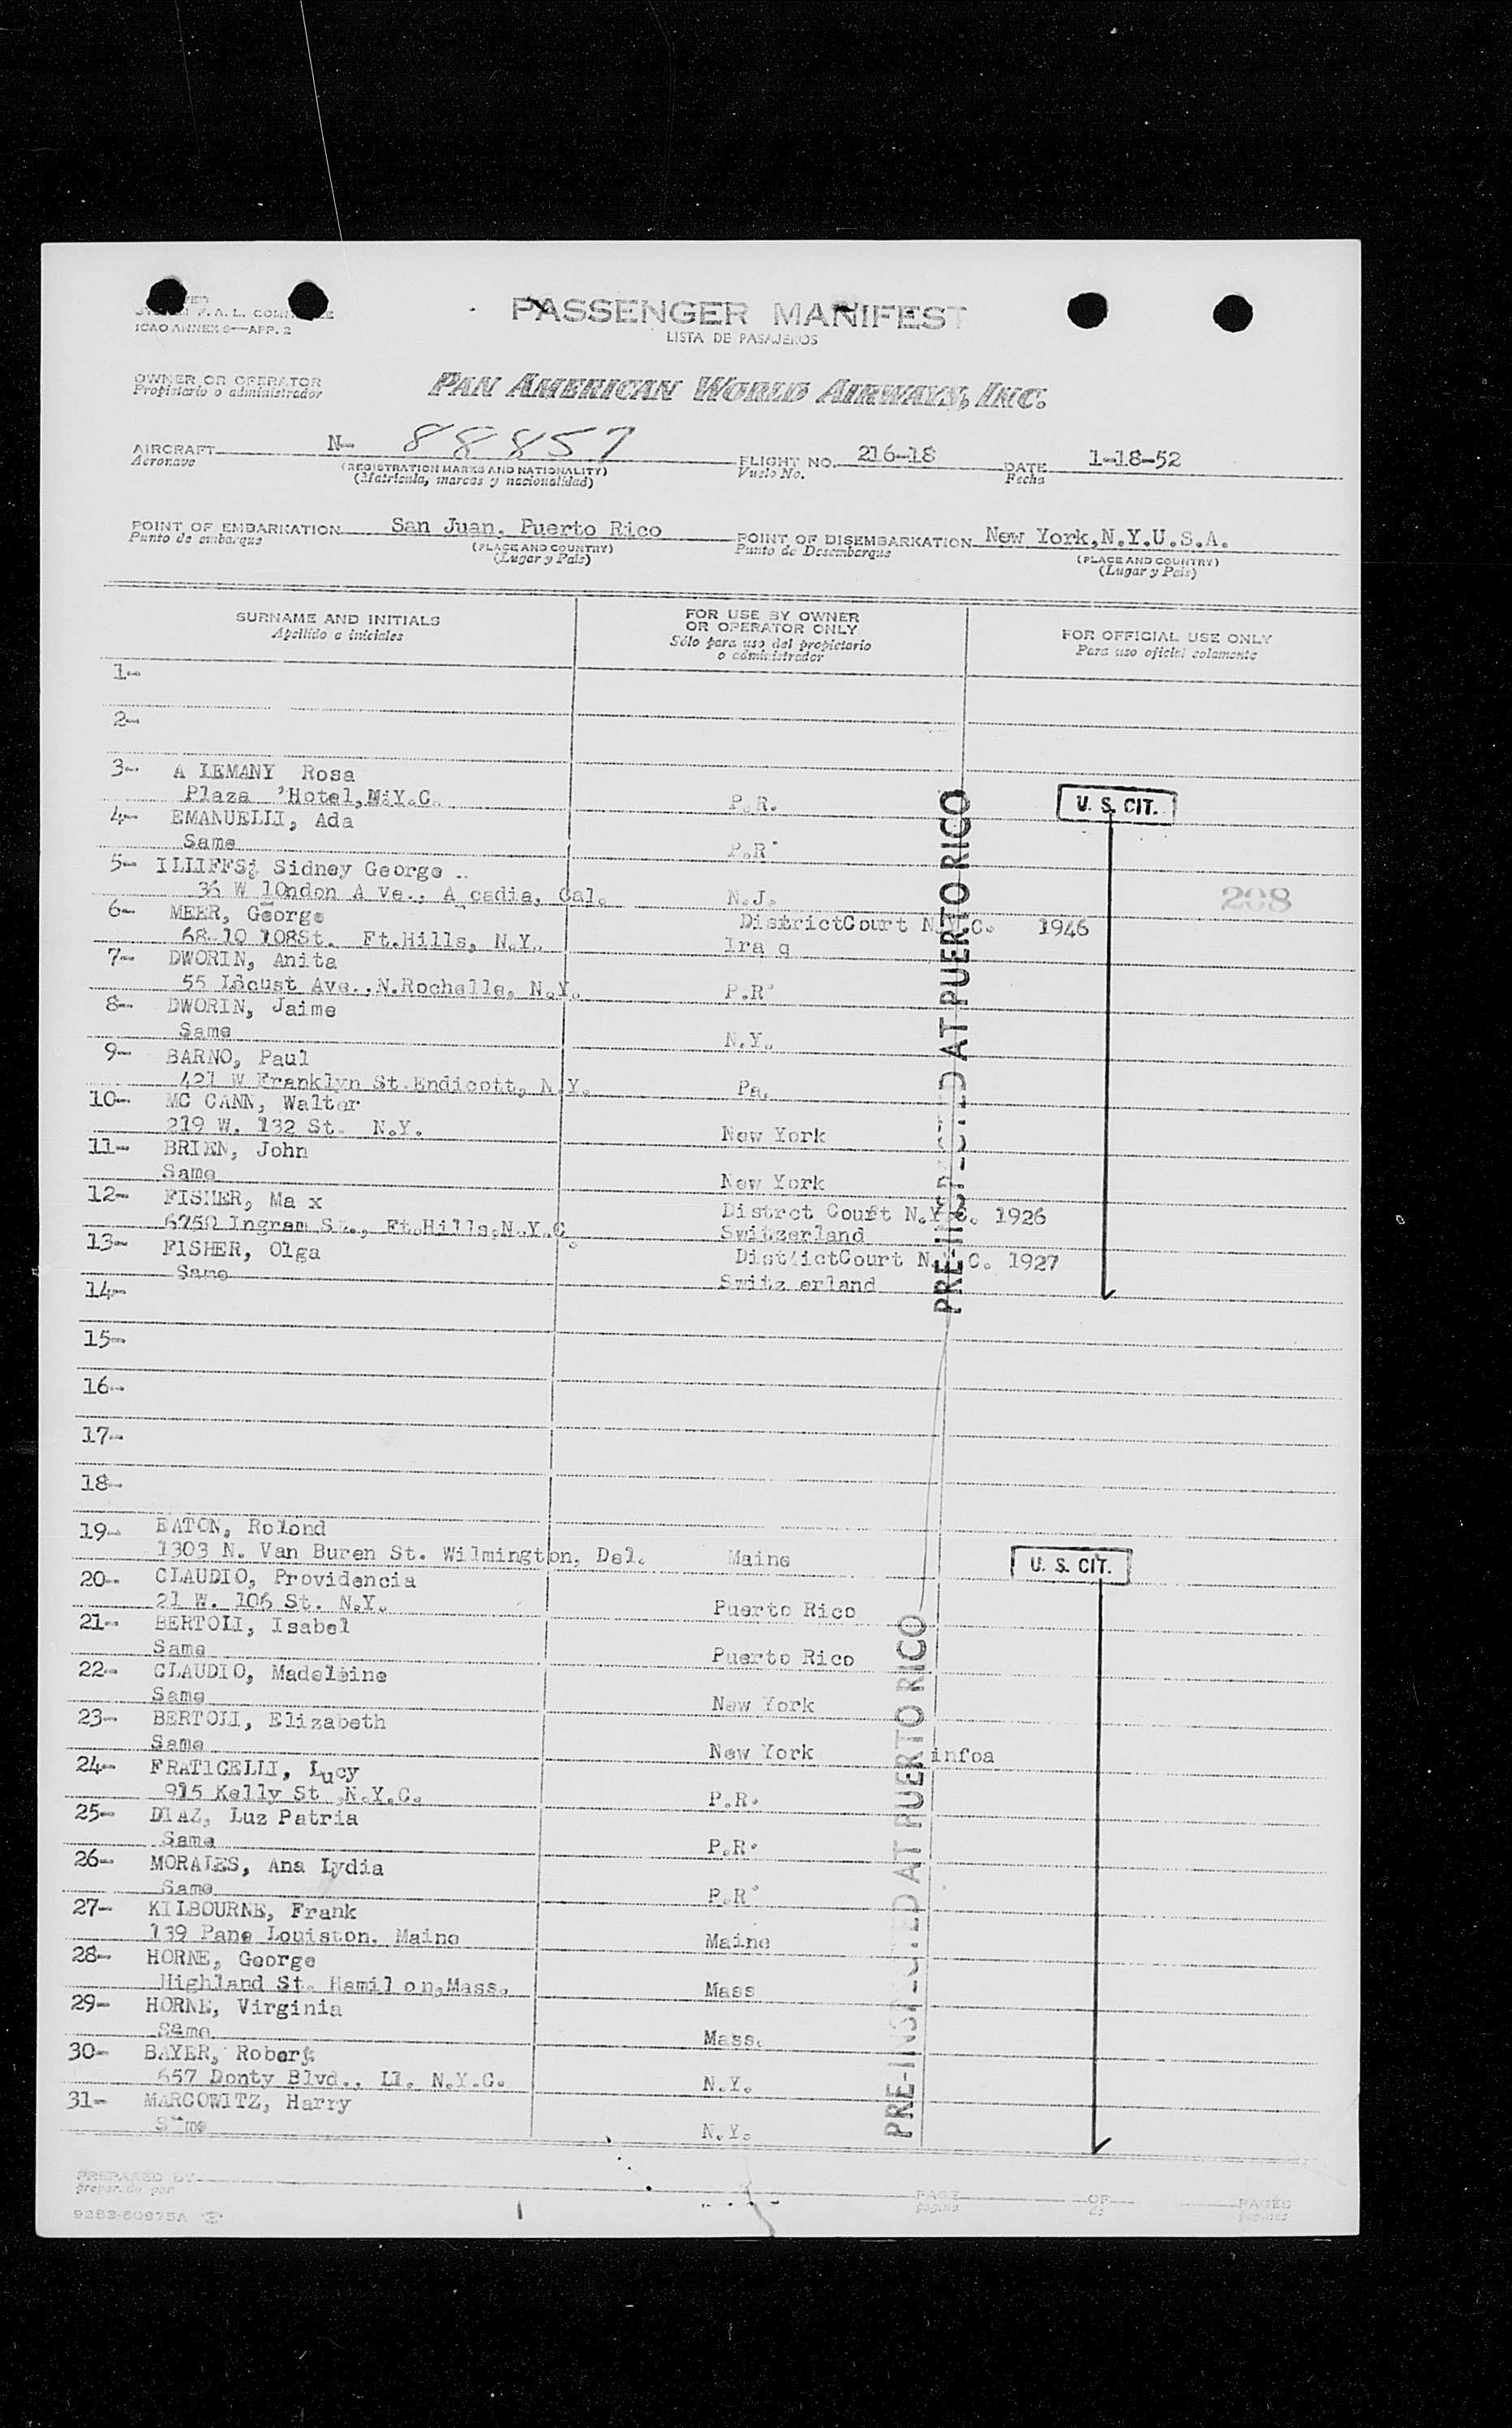 ICAO ANNEX 9—APP. 2
PASSENGER MANIFEST
LISTA DE PASAJEROS
OWNER OR OPERATOR
Propietario o administrador
PAN AMERICAN WORLD AIRWAYS, INC.
AIRCRAFT N- 88857 FLIGHT NO. 216-18 DATE 1-18-52
Aeronave (REGISTRATION MARKS AND NATIONALITY) Vuelo No. Fecha
(Matrícula, marcas y nacionalidad)
POINT OF EMBARKATION San Juan, Puerto Rico POINT OF DISEMBARKATION New York,N.Y.U.S.A.
Punto de embarque (PLACE AND COUNTRY) Punto de Desembarque (PLACE AND COUNTRY)
(Lugar y País) (Lugar y País)
SURNAME AND INITIALS FOR USE BY OWNER OR OPERATOR ONLY FOR OFFICIAL USE ONLY
Apellido e iniciales Sólo para uso del propietario o administrador Para uso oficial solamente
1-
2-
3- A LEMANY Rosa
Plaza 'Hotel,N.Y.C. P.R. U. S. CIT.
4- EMANUELLI, Ada
Same P.R.
5- ILLIFFS; Sidney George ..
36 W lOndon A ve., A cadia, Cal. N.J. 208
6- MEER, George DistrictCourt N.Y.C. 1946
68-10 108St. Ft.Hills, N.Y. Ira q
7- DWORIN, Anita
55 Locust Ave.,N.Rochelle, N.Y. P.R.
8- DWORIN, Jaime
Same N.Y.
9- BARNO, Paul
421 W Franklyn St.Endicott, N.Y. Pa.
10- MC CANN, Walter
219 W. 132 St. N.Y. New York
11- BRIEN, John
Same New York
12- FISHER, Ma x Distrct Court N.Y.C. 1926
6750 Ingram St., Ft.Hills,N.Y.C. Switzerland
13- FISHER, Olga DistrictCourt N.Y.C. 1927
Same Switz erland
PRE-INSPECTED AT PUERTO RICO
14-
15-
16-
17-
18-
19- EATON, Rolond
1303 N. Van Buren St. Wilmington, Del. Maine U. S. CIT.
20- CLAUDIO, Providencia
21 W. 106 St. N.Y. Puerto Rico
21- BERTOLI, Isabel
Same Puerto Rico
22- CLAUDIO, Madeleine
Same New York
23- BERTOLI, Elizabeth
Same New York infoa
24- FRATICELLI, Lucy
915 Kelly St ,N.Y.C. P.R.
25- DIAZ, Luz Patria
Same P.R.
26- MORALES, Ana Lydia
Same P.R.
27- KILBOURNE, Frank
139 Pane Louiston, Maine Maine
28- HORNE, George
Highland St. Hamil on,Mass. Mass
29- HORNE, Virginia
Same Mass.
30- BAYER, Robert
657 Donty Blvd., LI. N.Y.C. N.Y.
31- MARCOWITZ, Harry
Same N.Y.
PRE-INSPECTED AT PUERTO RICO
PREPARED BY PAGE OF PAGES
preparado por página de páginas
9283-60975A